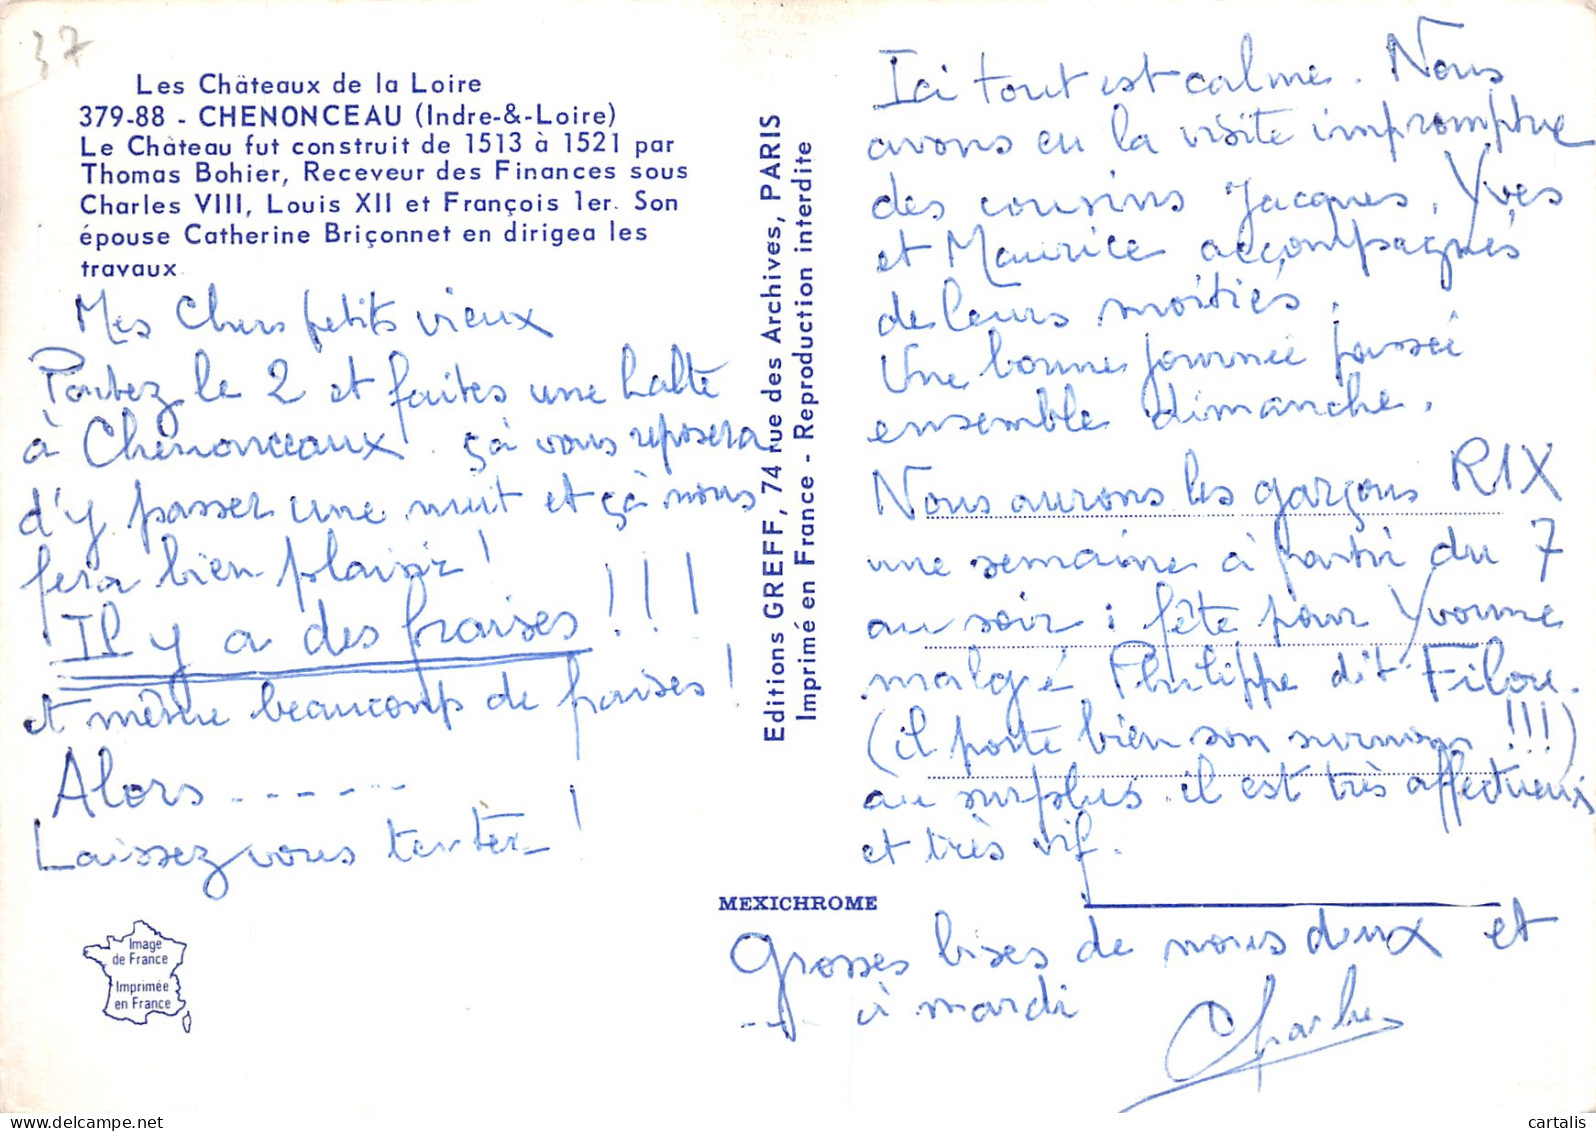 37
Les Châteaux de la Loire
379-88 - CHENONCEAU (Indre-&-Loire)
Le Château fut construit de 1513 à 1521 par
Thomas Bohier, Receveur des Finances sous
Charles VIII, Louis XII et François 1er. Son
épouse Catherine Briçonnet en dirigea les
travaux.
Mes Chers petits vieux
Partez le 2 et faites une halte
à Chenonceaux çà vous reposera
d'y passer une nuit et çà nous
fera bien plaisir !
Il y a des fraises !!!
et même beaucoup de fraises !
Alors ------
Laissez vous tenter !
Image
de France
Imprimée
en France
Editions GREFF, 74 rue des Archives, PARIS
Imprimé en France - Reproduction interdite
MEXICHROME
Ici tout est calme. Nous
avons eu la visite impromptue
des cousins Jacques, Yves
et Maurice accompagnés
de leurs moitiés.
Une bonne journée passée
ensemble dimanche.
Nous aurons les garçons RIX
une semaine à partir du 7
au soir : fête pour Yvonne
malgré Philippe dit Filou.
(il porte bien son surnom !!!)
au surplus il est très affectueux
et très vif.
Grosses bises de nous deux et
---- à mardi
Charles
cartalis